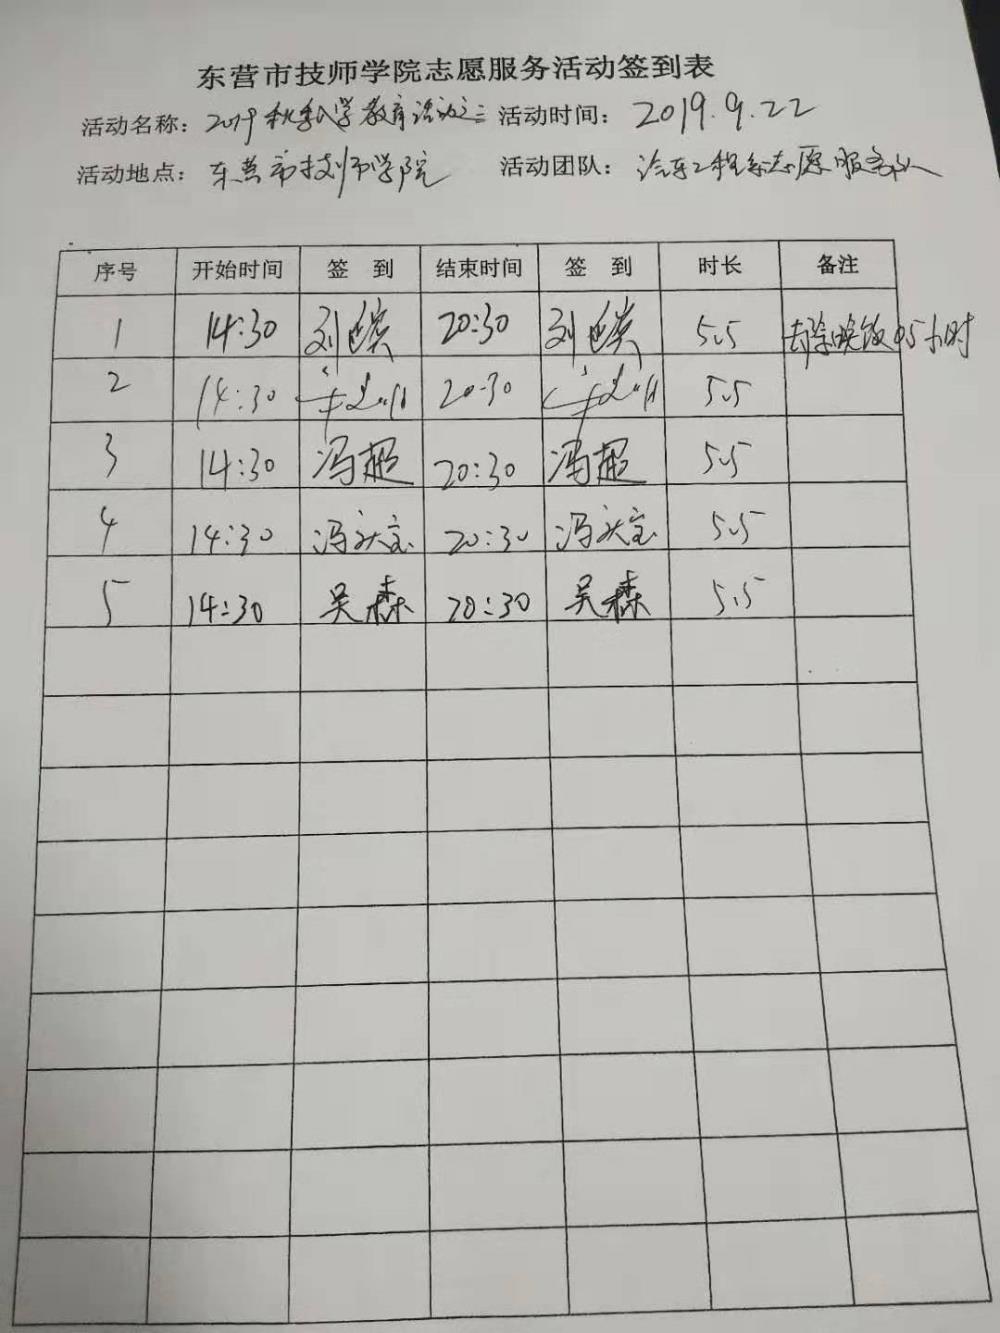 东营市技师学院志愿服务活动签到表
活动名称：2019秋季入学教育活动之二 活动时间：2019.9.22
活动地点：东营市技师学院 活动团队：汽车工程系志愿服务队
序号 开始时间 签 到 结束时间 签 到 时长 备注
1 14:30 刘 20:30 刘 5.5 去除晚饭0.5小时
2 14:30 20:30 5.5
3 14:30 冯超 20:30 冯超 5.5
4 14:30 冯 宝 20:30 冯 宝 5.5
5 14:30 吴森 20:30 吴森 5.5